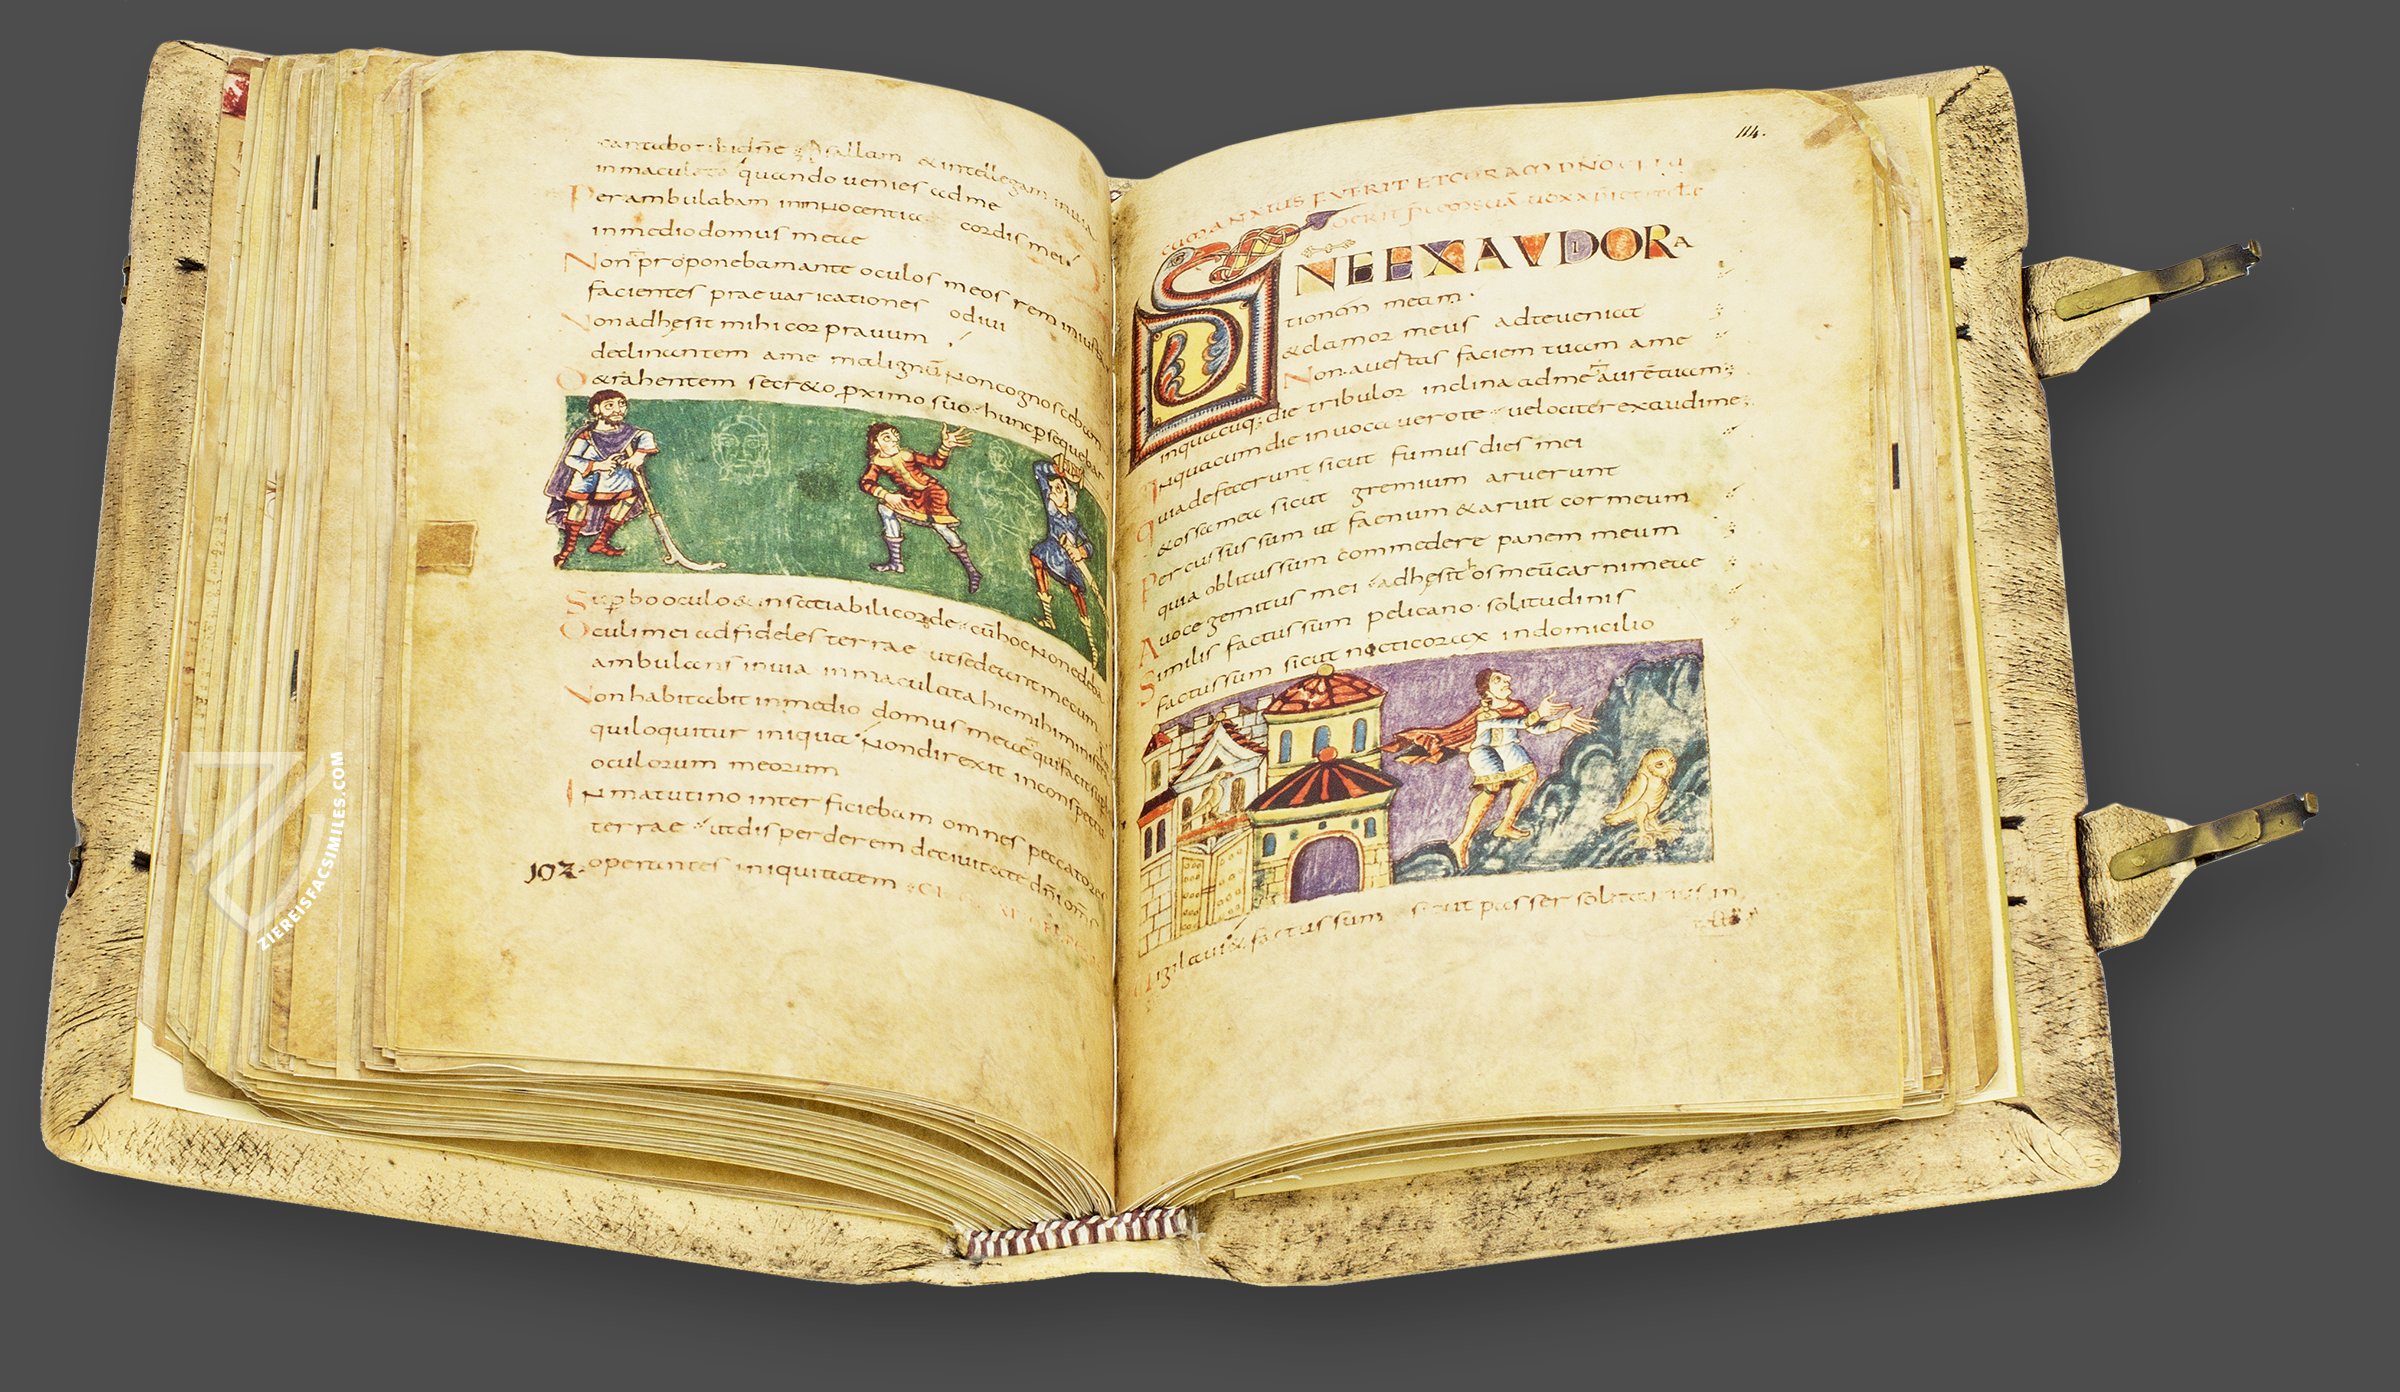 cantabo tibi dñe psallam & intellegam in via
inmaculata quando venies ad me
Perambulabam in innocentia cordis mei
in medio domus meae
Non proponebam ante oculos meos rem iniustā
facientes praevaricationes odivi
Non adhęsit mihi cor pravum
declinantem a me malignū non cognoscebam
D&rahentem secr&o pximo suo hunc psequebar
Supbo oculo & insatiabili corde cū hoc non edebā
Oculi mei ad fideles terrae ut sedeant mecum
ambulans in via inmaculata hic mihi ministr
Non habitabit in medio domus meae qui facit supb
qui loquitur iniqua non direxit in conspectu
oculorum meorum
In matutino interficiebam omnes peccatores
terrae ut disperderem de civitate dñi omš
102. operantes iniquitatem
114.
CUM ANXIUS FUERIT ET CORAM DÑO
NE EXAUDI ORA
tionem meam
& clamor meus ad te veniat
Non avertas faciem tuam a me
inquacuq; die tribulor inclina ad me aurē tuam
Inquacum die invocavero te velociter exaudi me
Quia defecerunt sicut fumus dies mei
& ossa mea sicut gremium aruerunt
Percussus sum ut faenum & aruit cor meum
quia oblitus sum commedere panem meum
A voce gemitus mei adhęsit os meū carni meae
Similis factus sum pelicano solitudinis
factus sum sicut nocticorax in domicilio
Vigilavi & factus sum sicut passer solitarius in
ZIEREISFACSIMILES.COM